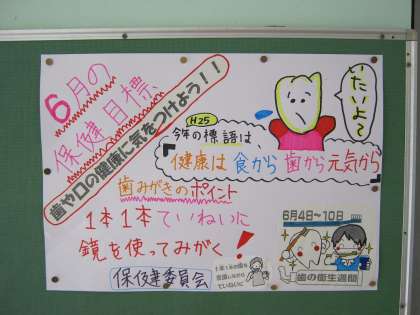 6月の
保健目標
歯や口の健康に気をつけよう！！
いたいよ～
H25
今年の標語は
健康は 食から 歯から 元気から
歯みがきのポイント
1本1本ていねいに
鏡を使ってみがく！
保健委員会
6月4日～10日
歯の衛生週間